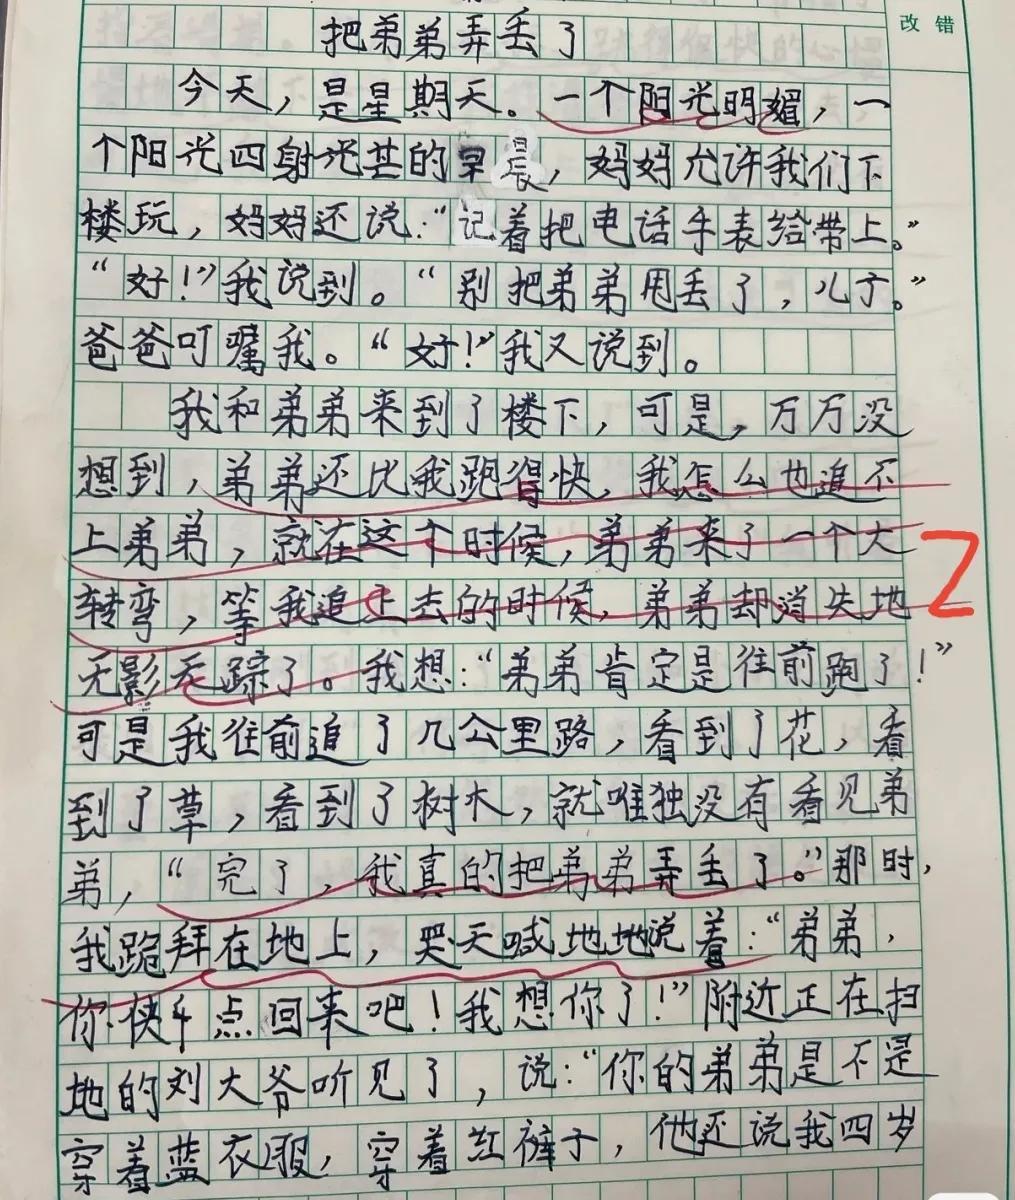 改错
把弟弟弄丢了
今天，是星期天。一个阳光明媚，一
个阳光四射光甚的早晨，妈妈允许我们下
楼玩，妈妈还说：“记着把电话手表给带上。”
“好！”我说到。“别把弟弟甩丢了，儿子。”
爸爸叮嘱我。“好！”我又说到。
我和弟弟来到了楼下，可是，万万没
想到，弟弟还比我跑得快，我怎么也追不
上弟弟，就在这个时候，弟弟来了一个大
转弯，等我追上去的时候，弟弟却消失地
无影无踪了。我想：“弟弟肯定是往前跑了！”
可是我往前追了几公里路，看到了花，看
到了草，看到了树木，就唯独没有看见弟
弟，“完了，我真的把弟弟弄丢了。”那时，
我跪拜在地上，哭天喊地地说着：“弟弟，
你快点回来吧！我想你了！”附近正在扫
地的刘大爷听见了，说：“你的弟弟是不是
穿着蓝衣服，穿着红裤子，他还说我四岁